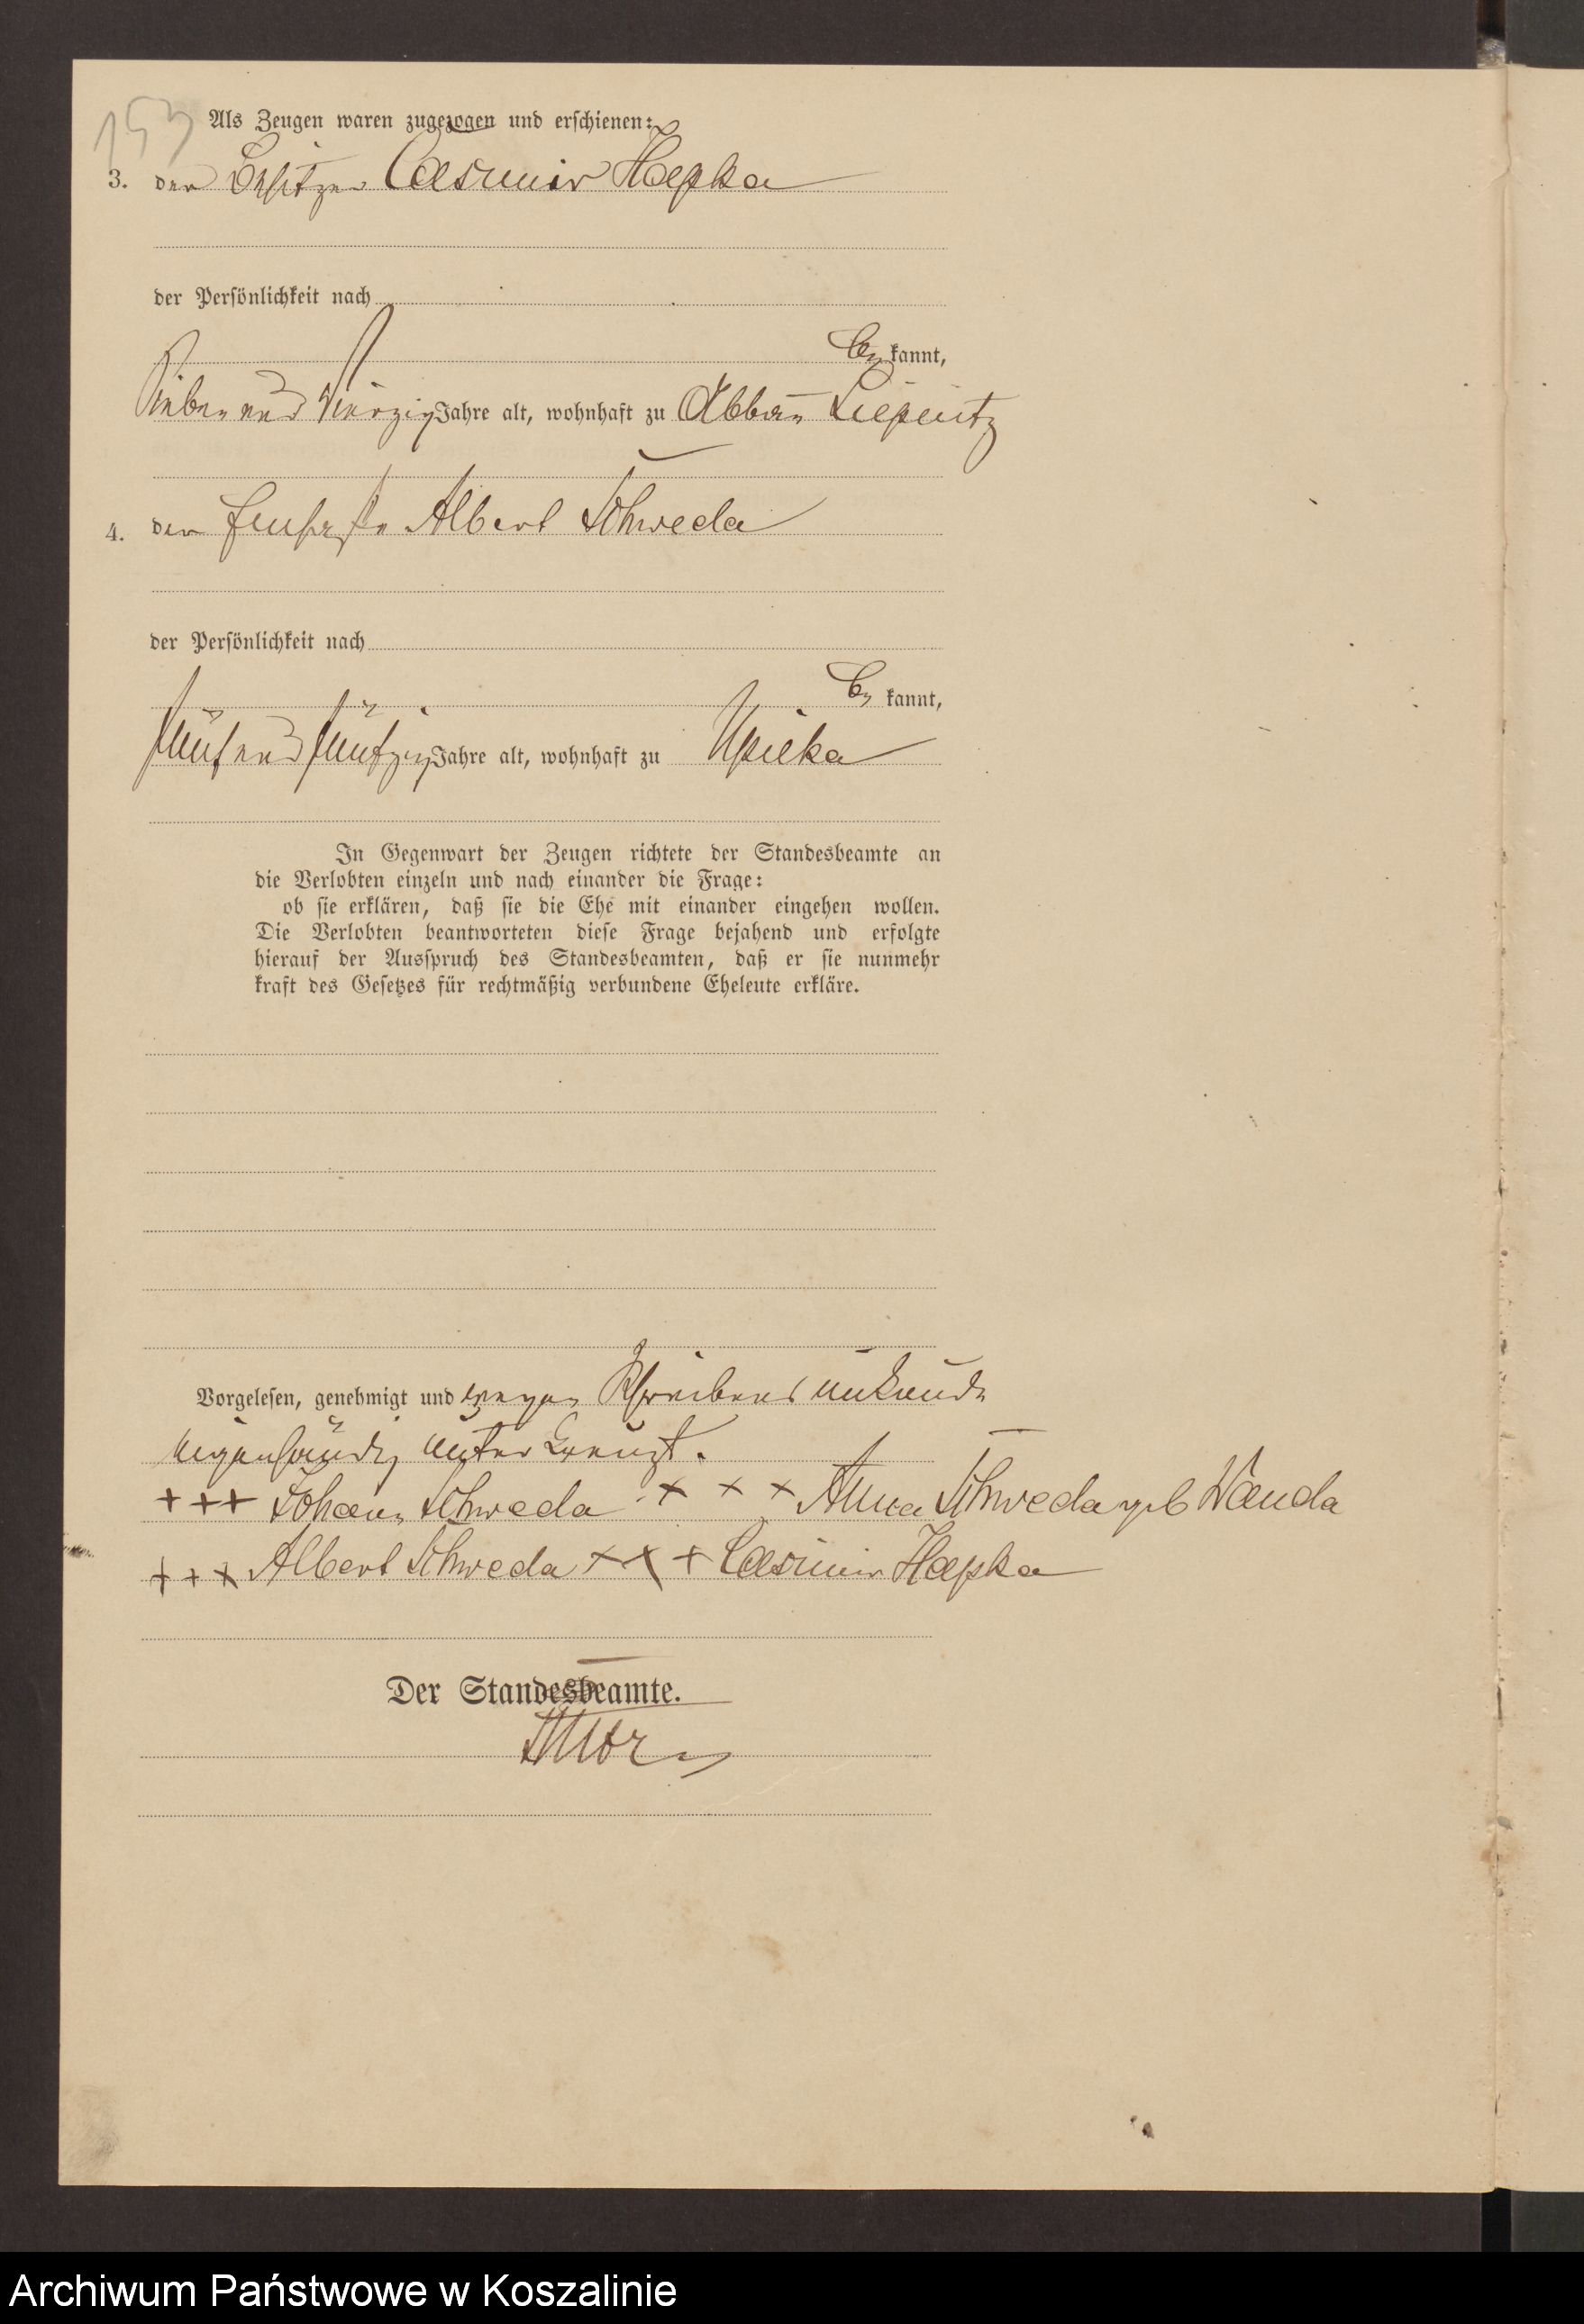 153
Als Zeugen waren zugezogen und erschienen:
3. der Besitzer Casimir Hapka
der Persönlichkeit nach
be kannt,
Sieben und Vierzig Jahre alt, wohnhaft zu Abbau Liepnitz
4. der Albert Schweda
der Persönlichkeit nach
be kannt,
fünf und fünfzig Jahre alt, wohnhaft zu Upilka
In Gegenwart der Zeugen richtete der Standesbeamte an
die Verlobten einzeln und nach einander die Frage:
ob sie erklären, daß sie die Ehe mit einander eingehen wollen.
Die Verlobten beantworteten diese Frage bejahend und erfolgte
hierauf der Ausspruch des Standesbeamten, daß er sie nunmehr
kraft des Gesetzes für rechtmäßig verbundene Eheleute erkläre.
Vorgelesen, genehmigt und wegen Schreibens unkunde
eigenhändig unter Kreuzt.
+++ Johann Schweda + + + Anna Schweda geb Wanda
+++ Albert Schweda + + + Casimir Hapka
Der Standesbeamte.
Archiwum Państwowe w Koszalinie